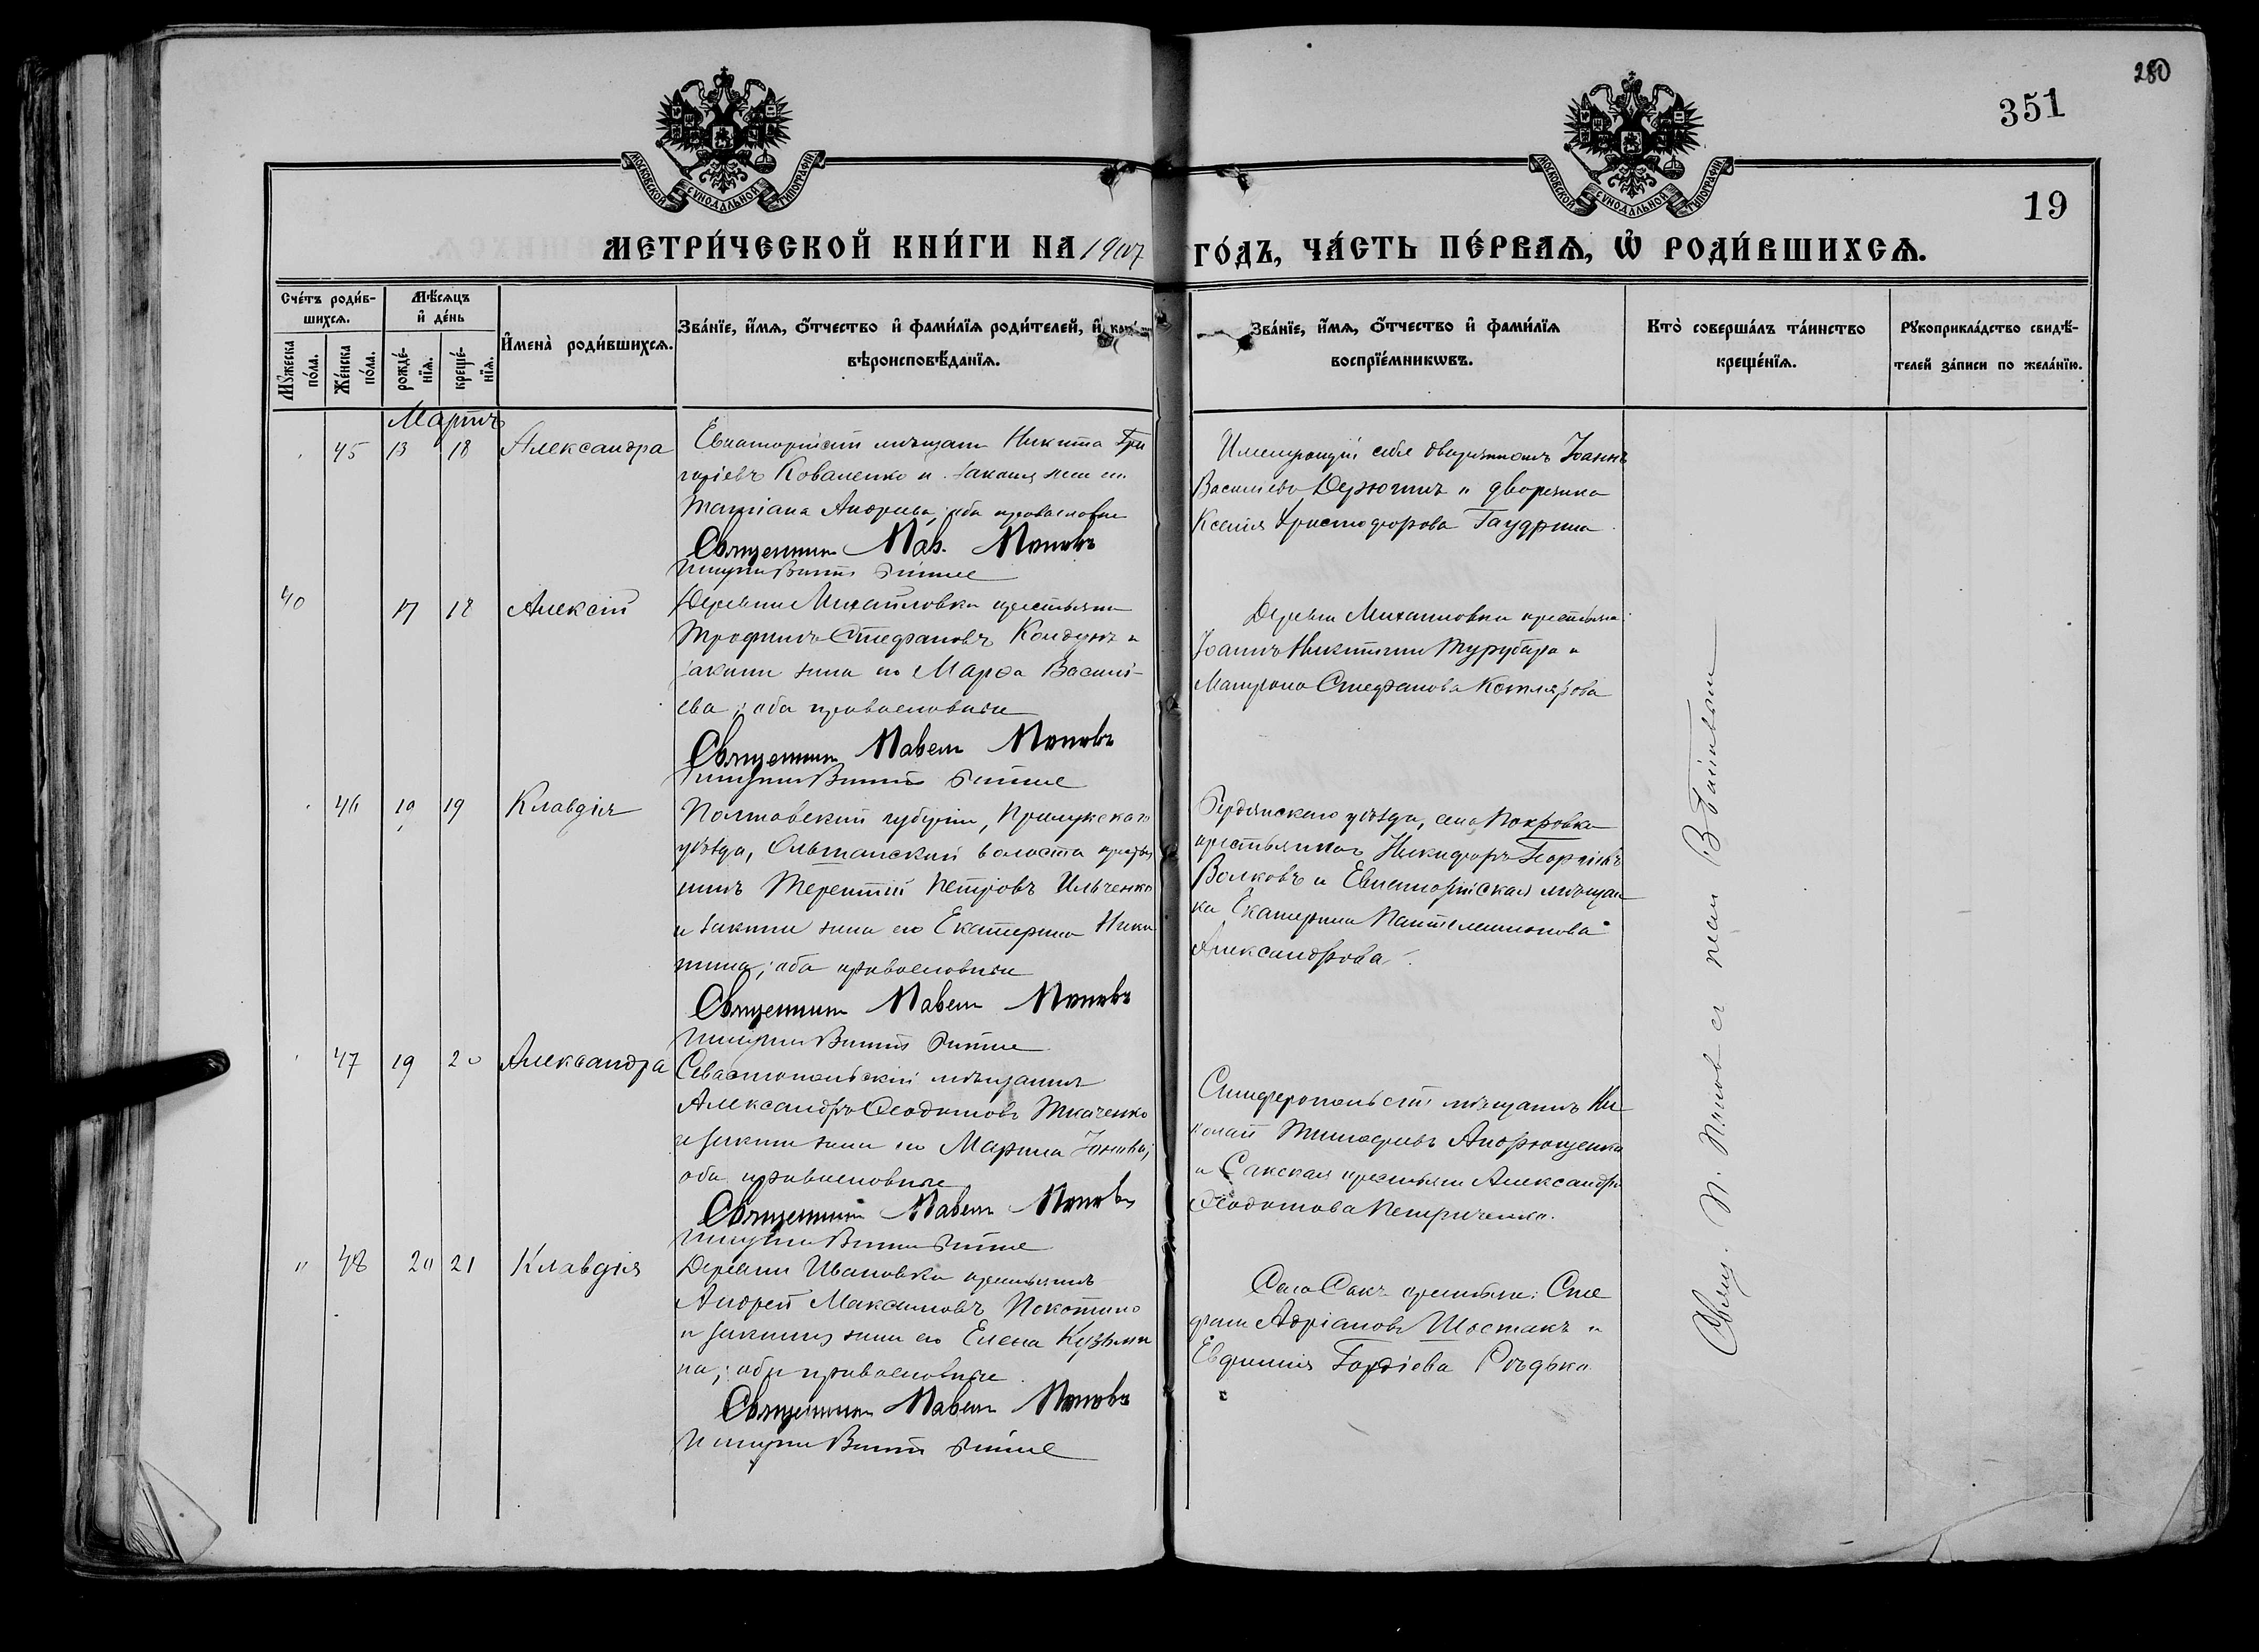 280
351
19
МОСКОВСКОЙ СѴНОДАЛЬНОЙ ТИПОГРАФІИ
МОСКОВСКОЙ СѴНОДАЛЬНОЙ ТИПОГРАФІИ
МЕТРИ́ЧЕСКОЙ КНИ́ГИ НА 1907 ГО́ДЪ, ЧА́СТЬ ПЕ́РВАѦ, Ѽ РОДИ́ВШИХСѦ.
Сче́тъ роди́в-
шихсѧ.
Мѣ́сѧцъ
и҆ де́нь
Мꙋ́жеска
по́ла.
Же́нска
по́ла.
рожде́-
нїѧ.
креще́-
нїѧ.
И҆мена̀ роди́вшихсѧ.
Зва́нїе, и҆́мѧ, ѻ҆́тчество и҆ фами́лїѧ роди́телей, и҆
вѣроисповѣ́данїѧ.
Зва́нїе, и҆́мѧ, ѻ҆́тчество и҆ фами́лїѧ
воспрїе́мникѡвъ.
Кто̀ соверша́лъ та́инство
креще́нїѧ.
Рꙋкоприкла́дство свидѣ́-
телей за́писи по жела́нїю.
Мартъ
45 13 18 Александра
Евпаторійскій мѣщанинъ Никита Гри
горіевъ Коваленко и законная жена его
Татіана Андреева, оба православные
Священникъ Пав. Поповъ
Именующій себя дворяниномъ Іоаннъ
Васильевъ Дерюгинъ и дворянка
Ксенія Христофорова
40 17 18 Алексій
Деревни Михайловки крестьянинъ
Трофимъ Стефановъ и
законная жена его Марѳа Василі-
ева; оба православные
Священникъ Павелъ Поповъ
Деревни Михайловки крестьяне:
Іоаннъ Никитинъ и
Матрона Стефанова Котлярова
46 19 19 Клавдія
Полтавской губерніи, Прилукскаго
уѣзда, Ольшанской волости крестья
нинъ Терентій Петровъ Ильченко
и законная жена его Екатерина Ники
тина; оба православные
Священникъ Павелъ Поповъ
Бердянскаго уѣзда, села Покровки
крестьянинъ Никифоръ Георгіевъ
Волковъ и Евпаторійская мѣщан-
ка Екатерина Пантелеимонова
Александрова.
47 19 20 Александра
Севастопольскій мѣщанинъ
Александръ Ѳеодотовъ Ткаченко
и законная жена его Марина
оба православные
Священникъ Павелъ Поповъ
Симферопольскій мѣщанинъ Ни-
колай Тимофеевъ Андрющенко
и Сакская крестьянка Александра
Ѳеодотова Петриченко.
" 48 20 21 Клавдія
Деревни Ивановки крестьянинъ
Андрей Максимовъ Покотило
и законная жена его Елена Кузьми
на; оба православные
Священникъ Павелъ Поповъ
Села Сакъ крестьяне: Сте
фанъ Адріановъ Шостакъ и
Евфимія Гордіева Рѣдька
Свящ. П. Поповъ съ